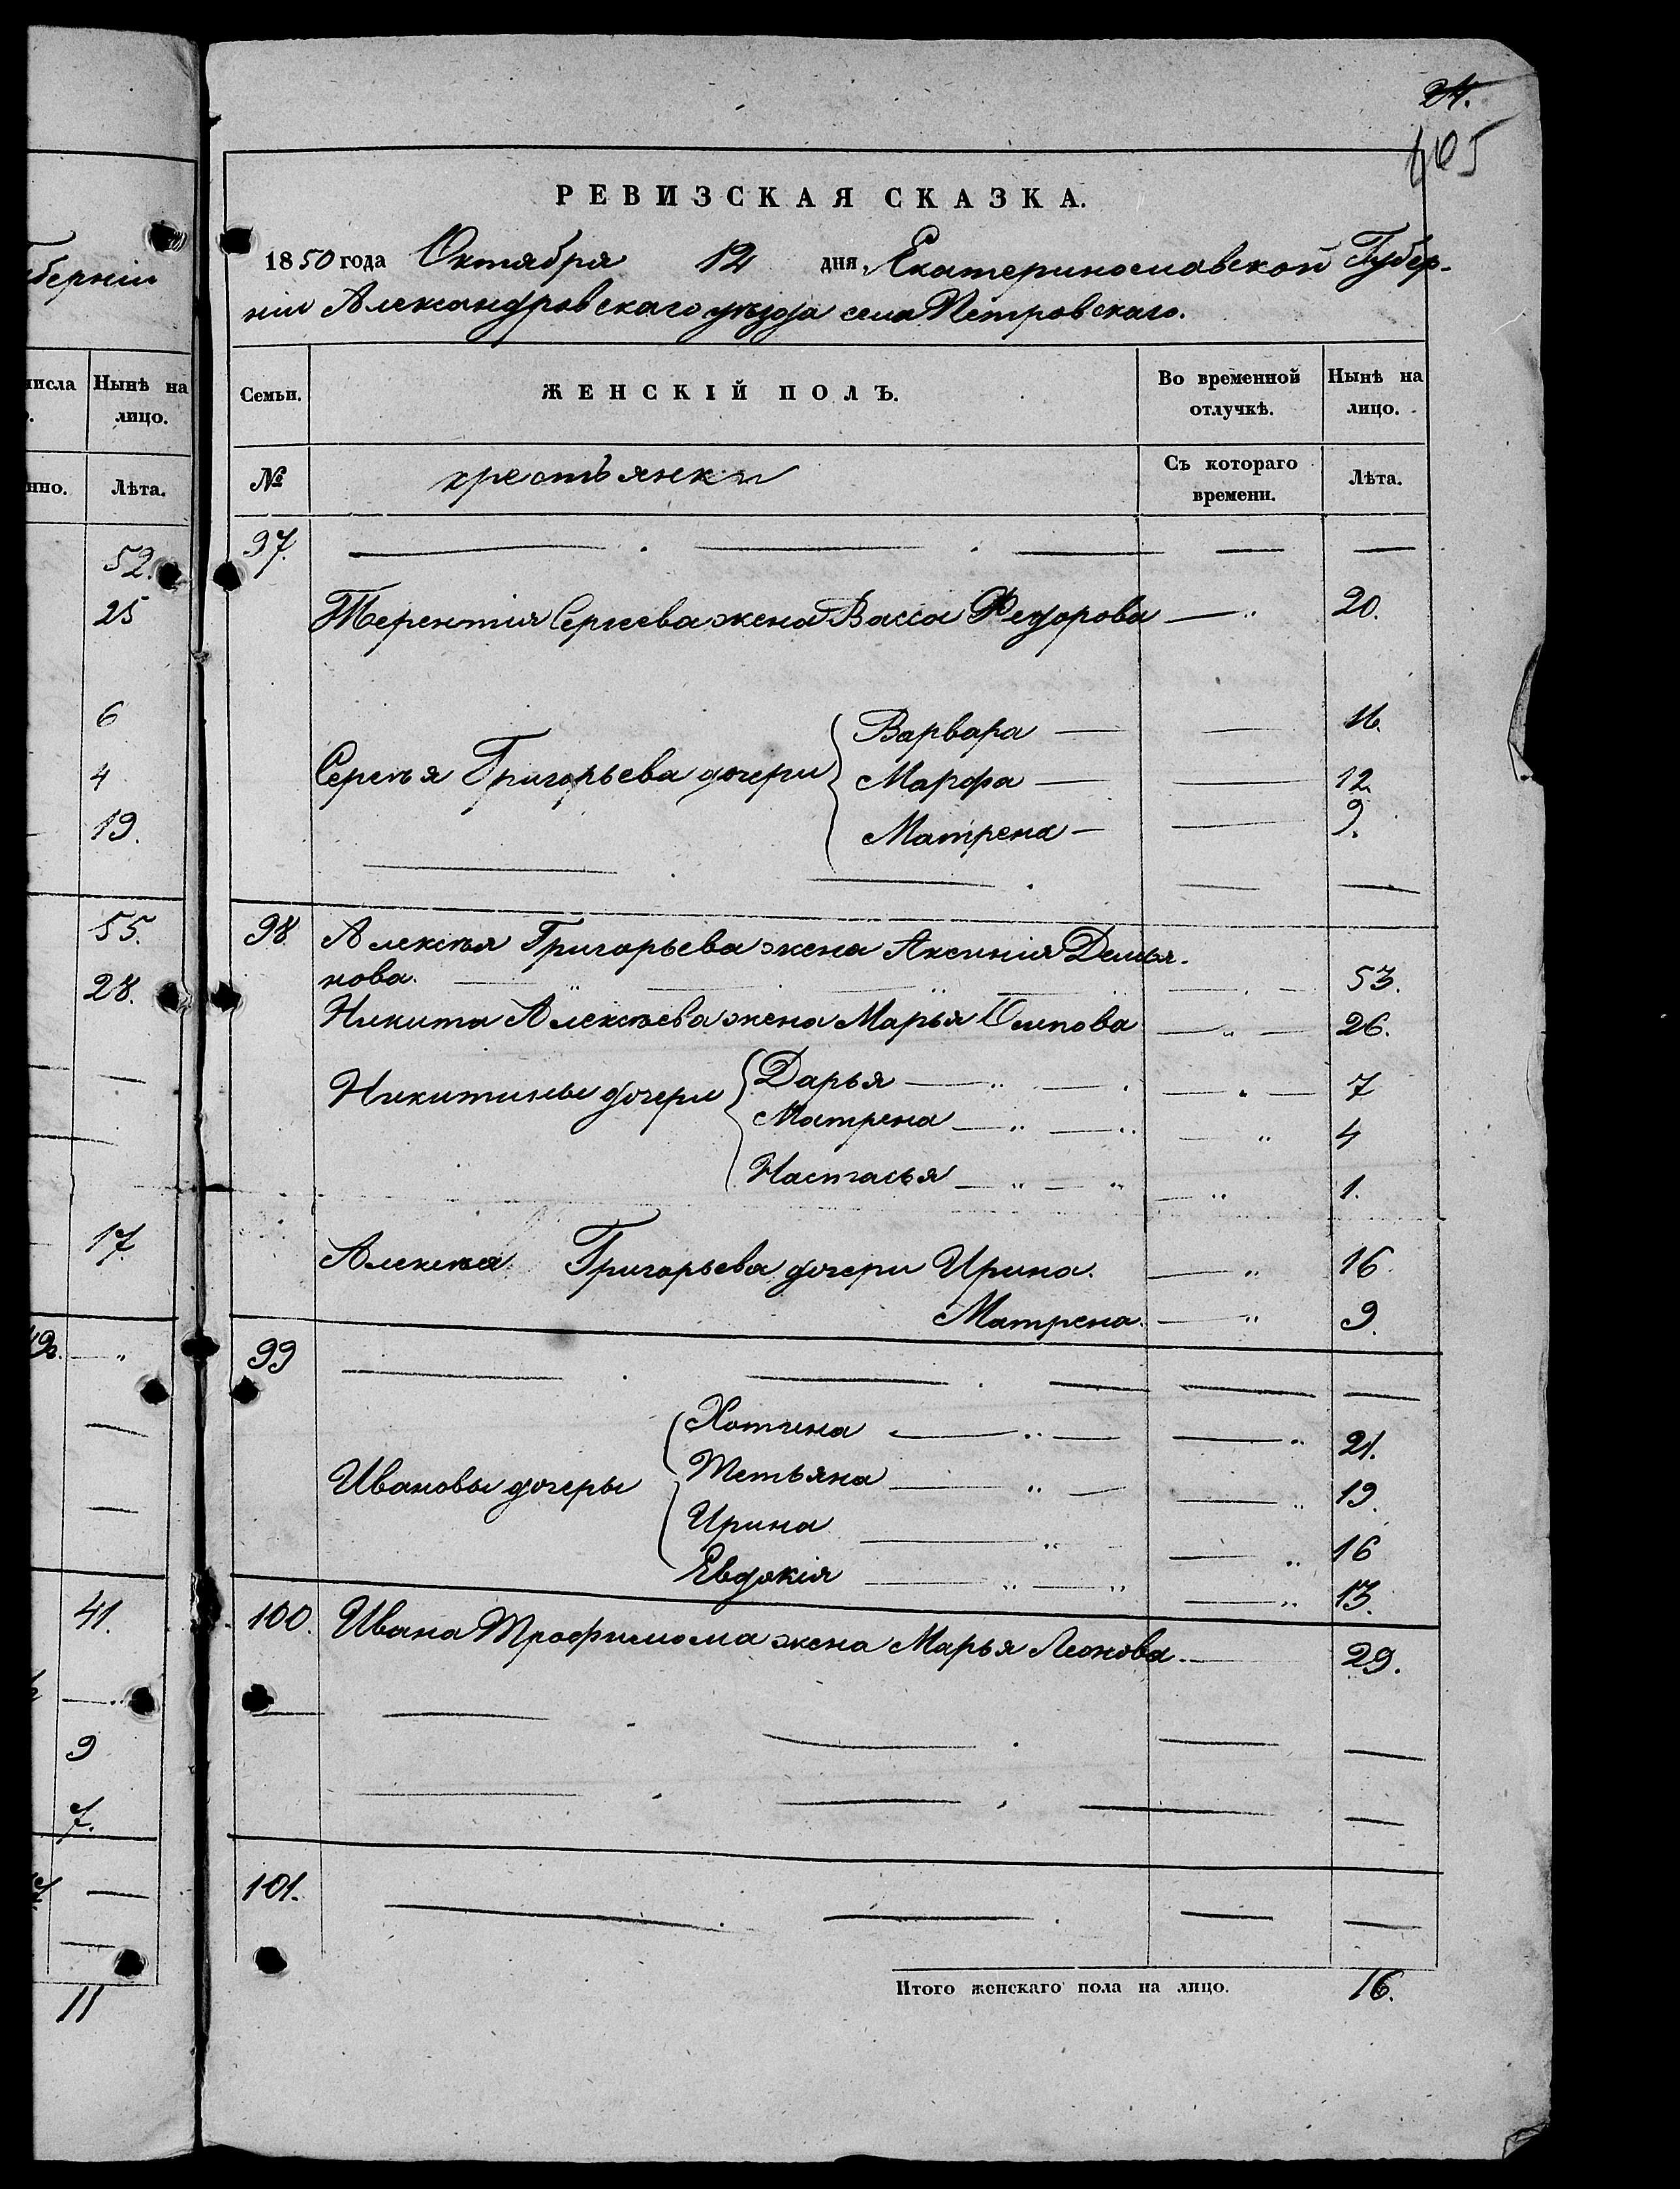 24.
105
РЕВИЗСКАЯ СКАЗКА.
1850 года Октября 12 дня, Екатеринославской Губер-
ніи Александровскаго уѣзда села Петровскаго.
Семьи. ЖЕНСКІЙ ПОЛЪ. Во временной отлучкѣ. Нынѣ на лицо.
№ крестьянки Съ котораго времени. Лѣта.
97.
Терентія Сергеева жена Васса Федорова 20.
Сергѣя Григорьева дочери Варвара 16.
Марфа 12
Матрена 9.
98 Алексѣя Григорьева жена Аксинія Демья-
нова. 53.
Никита Алексѣева жена Марья Осипова 26.
Никитины дочери Дарья 7
Матрена 4
Настасья 1.
Алексѣя Григорьева дочери Ирина. 16
Матрена. 9.
99
Хотина 21.
Ивановы дочеры Тетьяна 19.
Ирина 16
Евдокія 13.
100. Ивана Трофимома жена Марья Леонова. 29.
101.
Итого женскаго пола на лицо. 16.
берніи
числа Нынѣ на лицо.
нно. Лѣта.
52.
25
6
4
19.
55.
28.
17.
41.
9
7.
11